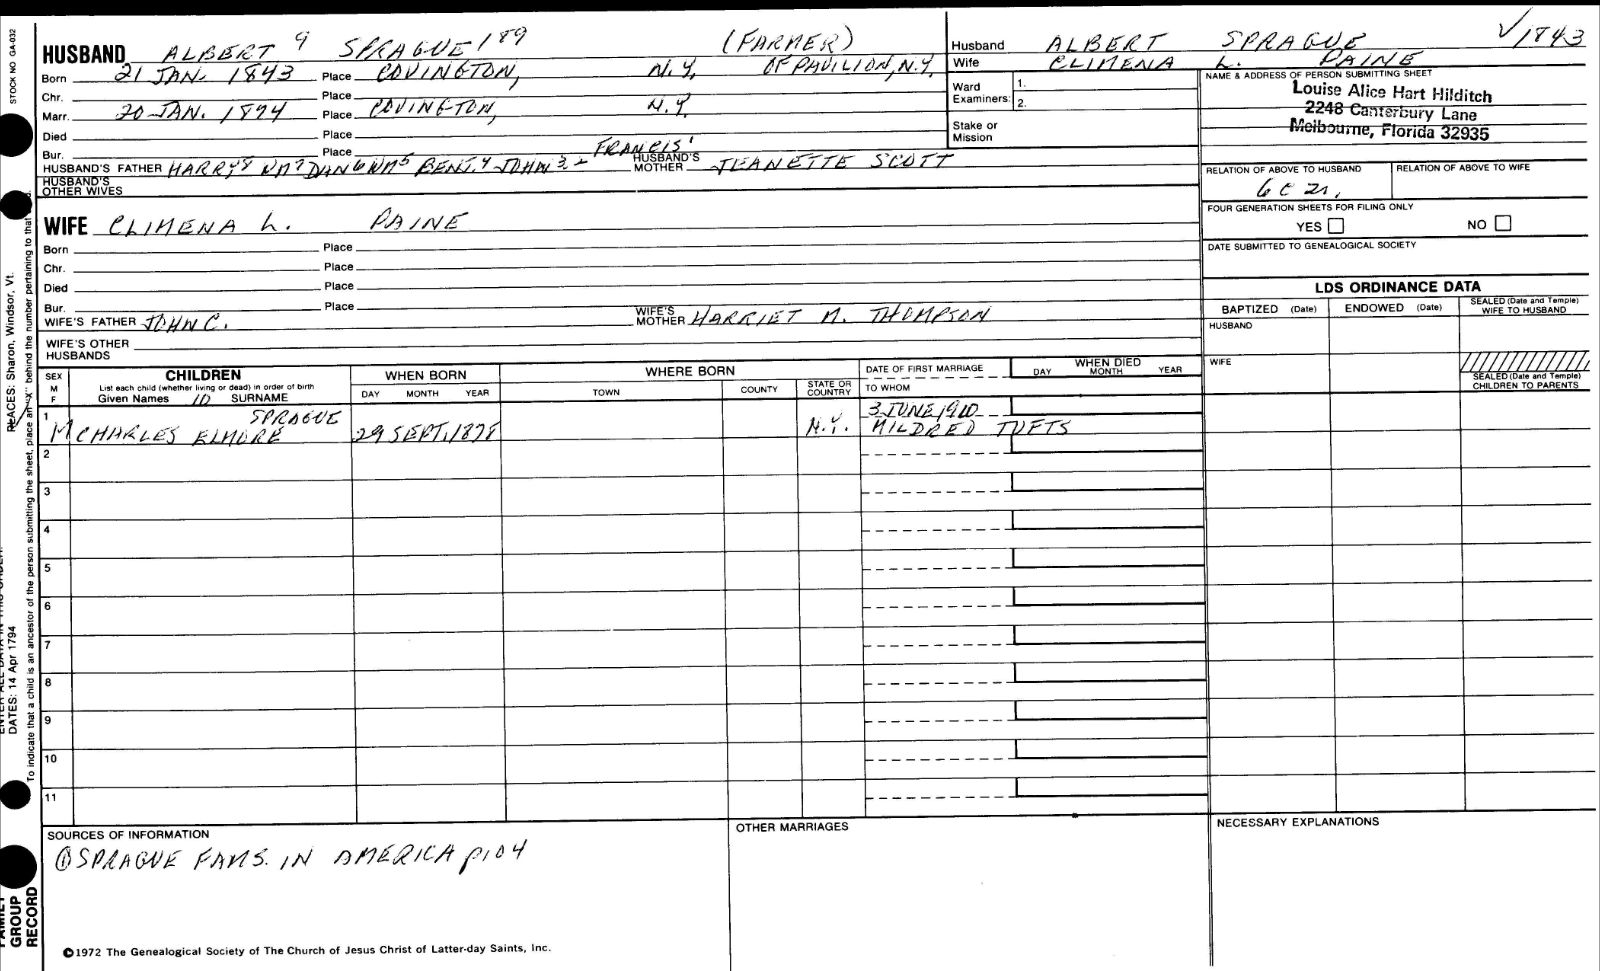 STOCK NO. GA-032
HUSBAND ALBERT 9 SPRAGUE 189 (FARMER)
Born 21 JAN. 1843 Place COVINGTON, N.Y. OF PAVILION, N.Y.
Chr. Place
Marr. 20 JAN. 1874 Place COVINGTON, N.Y.
Died Place
Bur. Place
HUSBAND'S FATHER HARRY8 WM7 DAN6 WM5 BENJ.4 JOHN 3-2 FRANCIS1 HUSBAND'S MOTHER JEANETTE SCOTT
HUSBAND'S OTHER WIVES
WIFE CLIMENA L. PAINE
Born Place
Chr. Place
Died Place
Bur. Place
WIFE'S FATHER JOHN C. WIFE'S MOTHER HARRIET M. THOMPSON
WIFE'S OTHER HUSBANDS
Husband ALBERT SPRAGUE ✓1843
Wife CLIMENA L. PAINE
Ward Examiners: 1. 2.
Stake or Mission
NAME & ADDRESS OF PERSON SUBMITTING SHEET
Louise Alice Hart Hilditch
2248 Canterbury Lane
Melbourne, Florida 32935
RELATION OF ABOVE TO HUSBAND RELATION OF ABOVE TO WIFE
6C 2r.
FOUR GENERATION SHEETS FOR FILING ONLY
YES NO
DATE SUBMITTED TO GENEALOGICAL SOCIETY
LDS ORDINANCE DATA
BAPTIZED (Date) ENDOWED (Date) SEALED (Date and Temple) WIFE TO HUSBAND
HUSBAND
WIFE
SEALED (Date and Temple) CHILDREN TO PARENTS
SEX M F
CHILDREN
List each child (whether living or dead) in order of birth
Given Names 10 SURNAME
WHEN BORN
DAY MONTH YEAR
WHERE BORN
TOWN COUNTY STATE OR COUNTRY
DATE OF FIRST MARRIAGE
TO WHOM
WHEN DIED
DAY MONTH YEAR
1 SPRAGUE 3 JUNE, 1910
M CHARLES ELMORE 29 SEPT, 1878 N.Y. MILDRED TUFTS
2
3
4
5
6
7
8
9
10
11
SOURCES OF INFORMATION
① SPRAGUE FAMS. IN AMERICA p104
OTHER MARRIAGES
NECESSARY EXPLANATIONS
©1972 The Genealogical Society of The Church of Jesus Christ of Latter-day Saints, Inc.
PLACES: Sharon, Windsor, Vt.
DATES: 14 Apr 1794
To indicate that a child is an ancestor of the person submitting the sheet, place an "X" behind the number pertaining to that
FAMILY GROUP RECORD